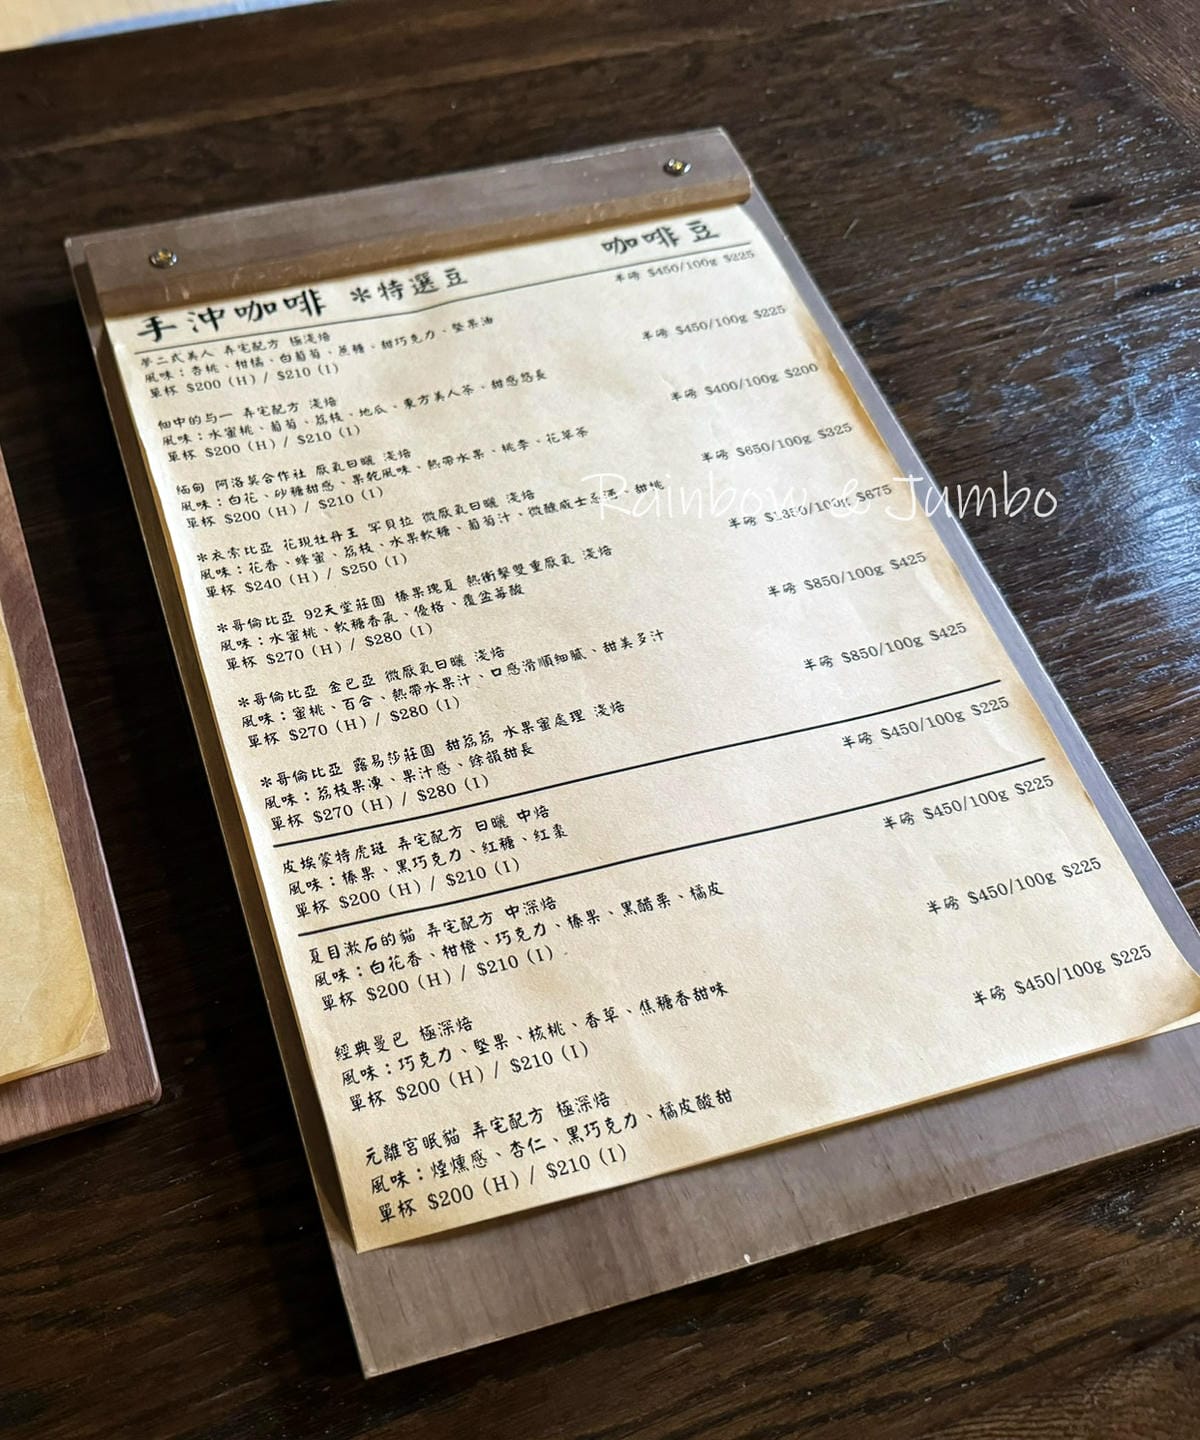 手沖咖啡 ＊特選豆 咖啡豆
夢二式美人 弄宅配方 極淺焙 半磅 $450/100g $225
風味：杏桃、柑橘、白葡萄、蔗糖、甜巧克力、堅果油
單杯 $200 (H) / $210 (I)
佃中的与一 弄宅配方 淺焙 半磅 $450/100g $225
風味：水蜜桃、葡萄、荔枝、地瓜、東方美人茶、甜感悠長
單杯 $200 (H) / $210 (I)
緬甸 阿洛莫合作社 厭氧日曬 淺焙 半磅 $400/100g $200
風味：白花、砂糖甜感、果乾風味、熱帶水果、桃李、花草茶
單杯 $200 (H) / $210 (I)
＊衣索比亞 花現牡丹王 罕貝拉 微厭氧日曬 淺焙 半磅 $650/100g $325
風味：花香、蜂蜜、荔枝、水果軟糖、葡萄汁、微醺威士忌酒、甜桃
單杯 $240 (H) / $250 (I)
＊哥倫比亞 92天堂莊園 榛果瑰夏 熱衝擊雙重厭氧 淺焙 半磅 $1350/100g $675
風味：水蜜桃、軟糖香氣、優格、覆盆莓酸
單杯 $270 (H) / $280 (I)
＊哥倫比亞 金巴亞 微厭氧日曬 淺焙 半磅 $850/100g $425
風味：蜜桃、百合、熱帶水果汁、口感滑順細膩、甜美多汁
單杯 $270 (H) / $280 (I)
＊哥倫比亞 露易莎莊園 甜荔荔 水果蜜處理 淺焙 半磅 $850/100g $425
風味：荔枝果凍、果汁感、餘韻甜長
單杯 $270 (H) / $280 (I)
皮埃蒙特虎斑 弄宅配方 日曬 中焙 半磅 $450/100g $225
風味：榛果、黑巧克力、紅糖、紅棗
單杯 $200 (H) / $210 (I)
夏目漱石的貓 弄宅配方 中深焙 半磅 $450/100g $225
風味：白花香、柑橙、巧克力、榛果、黑醋栗、橘皮
單杯 $200 (H) / $210 (I)
經典曼巴 極深焙 半磅 $450/100g $225
風味：巧克力、堅果、核桃、香草、焦糖香甜味
單杯 $200 (H) / $210 (I)
元離宮眠貓 弄宅配方 極深焙 半磅 $450/100g $225
風味：煙燻感、杏仁、黑巧克力、橘皮酸甜
單杯 $200 (H) / $210 (I)
Rainbow & Jumbo